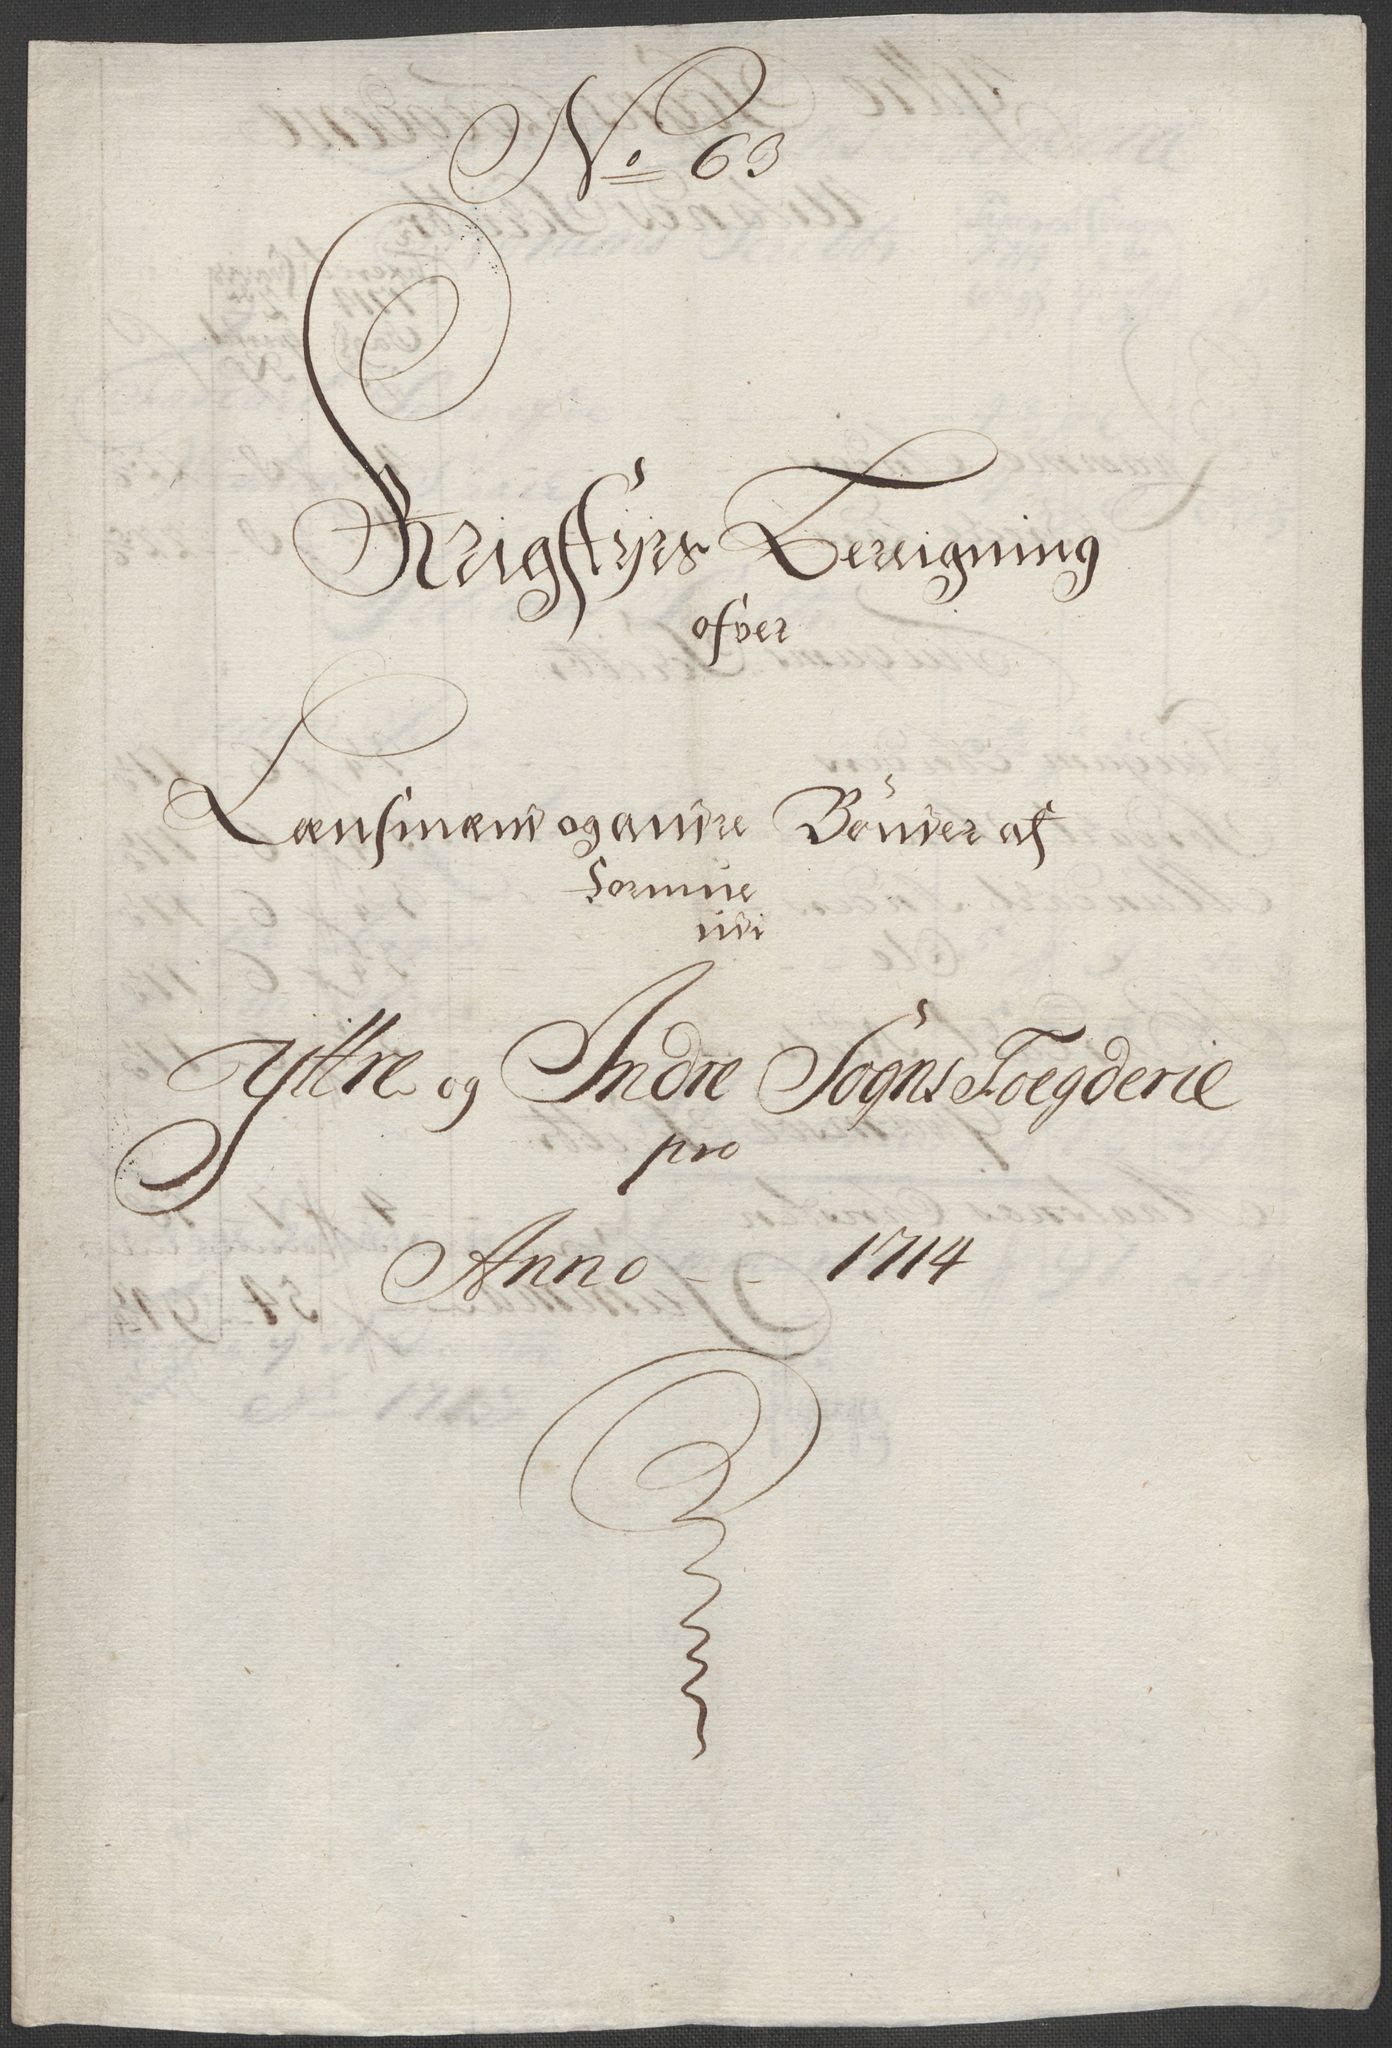 No 63
Krigstÿrs Bereigning
ofver
Lænsmænd og andre Bönder af
Formue
udi
Yttre og Indre Sogns Foegderie
pro
Anno - - 1714